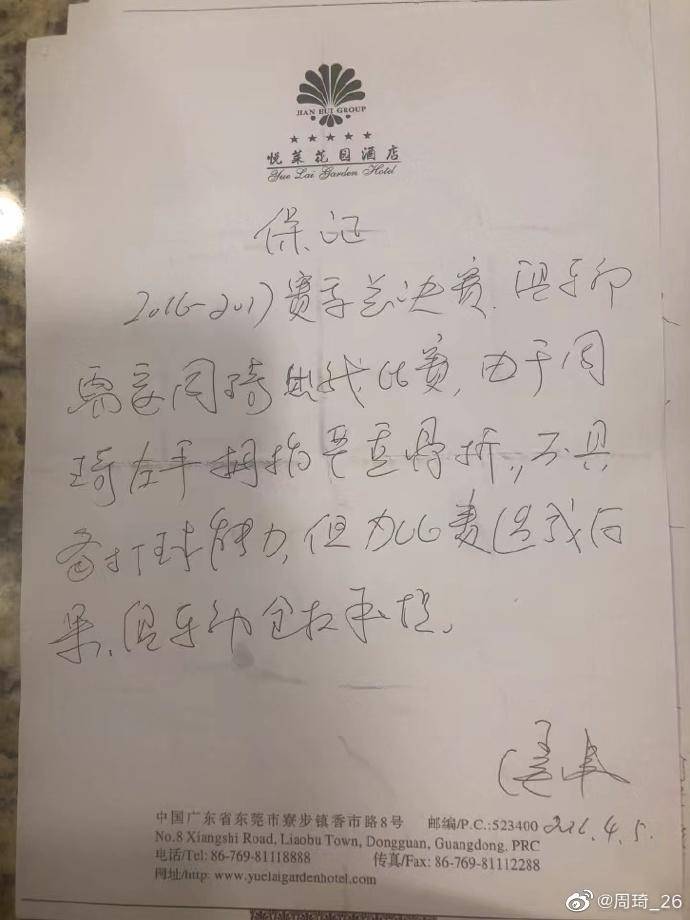 JIAN HUI GROUP
★ ★ ★ ★ ★
悦莱花园酒店
Yue Lai Garden Hotel
保证
2016-2017赛季总决赛.俱乐部
需要周琦出战比赛,由于周
琦左手拇指严重骨折,不具
备打球能力,但为比赛造成后
果,俱乐部全权承担.
2016.4.5.
中国广东省东莞市寮步镇香市路8号 邮编/P.C.:523400
No.8 Xiangshi Road, Liaobu Town, Dongguan, Guangdong, PRC
电话/Tel: 86-769-81118888 传真/Fax: 86-769-81112288
网址/http: www.yuelaigardenhotel.com
@周琦_26